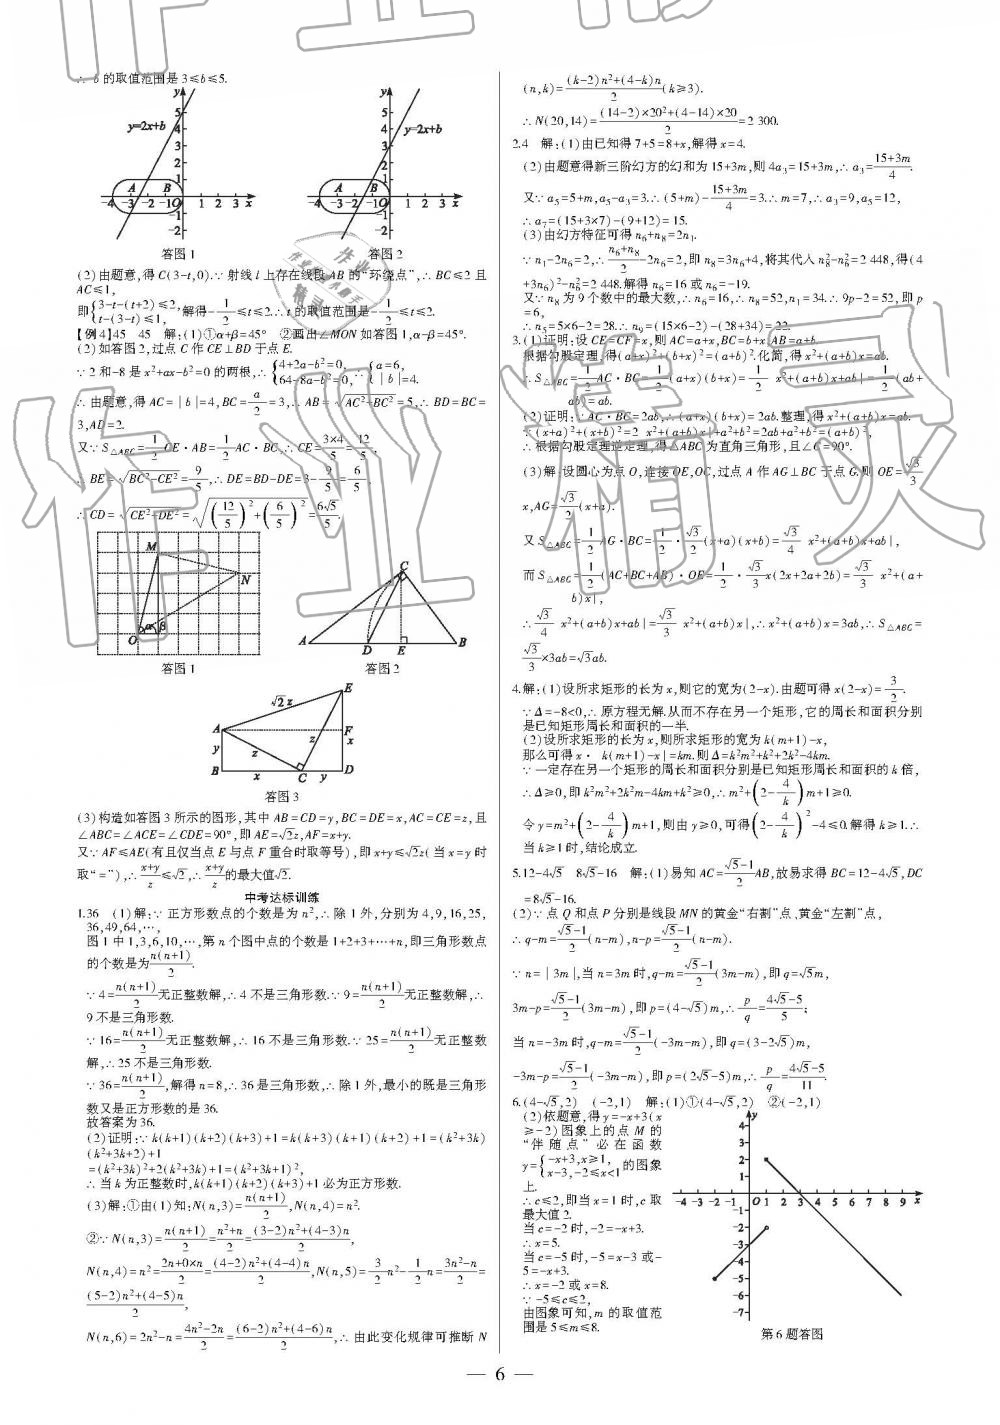 ∴ b的取值范围是3≤b≤5.
答图1
答图2
(2)由题意,得C(3-t,0).∵射线l上存在线段AB的“环绕点”,∴BC≤2且
AC≤1,
即{3-t-(t+2)≤2, 3-t-(t-6)≤1, 解得-1/2≤t≤2.∴t的取值范围是-1/2≤t≤2.
【例4】45 45 解:(1)①α+β=45° ②画出∠MON如答图1,α-β=45°.
(2)如答图2,过点C作CE⊥BD于点E.
∵2和-8是x²+ax-b²=0的两根,∴{4+2a-b²=0, 64-8a-b²=0, ∴{a=6, |b|=4.
∴由题意,得AC=|b|=4,BC=a/2=3,∴AB=√(AC²+BC²)=5,∴BD=BC=
3,AD=2.
又∵S△ABC=1/2CE·AB=1/2AC·BC,∴CE=3×4/5=12/5,
∴BE=√(BC²-CE²)=9/5,∴DE=BD-DE=3-9/5=6/5.
∴CD=√(CE²+DE²)=√((12/5)²+(6/5)²)=6√5/5.
答图1
答图2
答图3
(3)构造如答图3所示的图形,其中AB=CD=y,BC=DE=x,AC=CE=z,且
∠ABC=∠ACE=∠CDE=90°,即AE=√2z,AF=x+y.
又∵AF≤AE(有且仅当点E与点F重合时取等号),即x+y≤√2z(当x=y时
取“=”),∴(x+y)/z≤√2,∴(x+y)/z的最大值√2.
中考达标训练
1.36 (1)解:∵正方形数点的个数是为n²,∴除1外,分别为4,9,16,25,
36,49,64,…,
图1中1,3,6,10,…,第n个图中点的个数是1+2+3+…+n,即三角形数点
的个数是为n(n+1)/2.
∵4=n(n+1)/2无正整数解,∴4不是三角形数.∵9=n(n+1)/2无正整数解,∴
9不是三角形数.
∵16=n(n+1)/2无正整数解,∴16不是三角形数.∵25=n(n+1)/2无正整数
解,∴25不是三角形数.
∵36=n(n+1)/2,解得n=8,∴36是三角形数,∴除1外,最小的既是三角形
数又是正方形数的是36.
故答案为36.
(2)证明:∵k(k+1)(k+2)(k+3)+1=k(k+3)(k+1)(k+2)+1=(k²+3k)
(k²+3k+2)+1
=(k²+3k)²+2(k²+3k)+1=(k²+3k+1)²,
∴当k为正整数时,k(k+1)(k+2)(k+3)+1必为正方形数.
(3)解:①由(1)知:N(n,3)=n(n+1)/2,N(n,4)=n².
②∵N(n,3)=n(n+1)/2=(n²+n)/2=((3-2)n²+(4-3)n)/2,
N(n,4)=n²=(2n+0×n)/2=((4-2)n²+(4-4)n)/2,N(n,5)=3/2n²-1/2n=(3n²-n)/2=
((5-2)n²+(4-5)n)/2,
N(n,6)=2n²-n=(4n²-2n)/2=((6-2)n²+(4-6)n)/2,∴由此变化规律可推断N
(n,k)=((k-2)n²+(4-k)n)/2(k≥3).
∴N(20,14)=((14-2)×20²+(4-14)×20)/2=2 300.
2.4 解:(1)由已知得7+5=8+x,解得x=4.
(2)由题意得新三阶幻方的幻和为15+3m,则4a₃=15+3m,∴a₃=(15+3m)/4.
又∵a₅=5+m,a₅-a₃=3.∴(5+m)-(15+3m)/4=3.∴m=7,∴a₃=9,a₅=12,
∴a₇=(15+3×7)-(9+12)=15.
(3)由幻方特征可得n₆+n₈=2n₁.
∵n₁-2n₆=2,∴(n₆+n₈)/2-2n₆=2,即n₈=3n₆+4,将其代入n₈²-n₆²=2 448,得(4
+3n₆)²-n₆²=2 448.解得n₆=16或n₆=-19.
又∵n₈为9个数中的最大数,∴n₆=16,∴n₈=52,n₁=34.∴9p-2=52,即p
=6,
∴n₅=5×6-2=28.∴n₉=(15×6-2)-(28+34)=22.
3.(1)证明:设CE=CF=x,则AC=a+x,BC=b+x,AB=a+b.
根据勾股定理,得(a+x)²+(b+x)²=(a+b)².化简,得x²+(a+b)x=ab.
∴S△ABC=1/2AC·BC=1/2(a+x)(b+x)=1/2|x²+(a+b)x+ab|=1/2(ab+
ab)=ab.
(2)证明:∵AC·BC=2ab,∴(a+x)(b+x)=2ab.整理,得x²+(a+b)x=ab.
∵(x+a)²+(x+b)²=2|x²+(a+b)x|+a²+b²=2ab+a²+b²=(a+b)²,
∴根据勾股定理逆定理,得△ABC为直角三角形,且∠C=90°.
(3)解:设圆心为点O,连接OE,OC,过点A作AG⊥BC于点G.则OE=√3/3
x,AG=√3/2(x+a).
又∵S△ABC=1/2AG·BC=1/2·√3/2(x+a)(x+b)=√3/4|x²+(a+b)x+ab|,
而S△ABC=1/2(AC+BC+AB)·OE=1/2·√3/3x(2x+2a+2b)=√3/3|x²+(a+
b)x|,
∴√3/4|x²+(a+b)x+ab|=√3/3|x²+(a+b)x|,∴x²+(a+b)x=3ab,∴S△ABC=
√3/3×3ab=√3ab.
4.解:(1)设所求矩形的长为x,则它的宽为(2-x).由题可得x(2-x)=3/2.
∵Δ=-8<0,∴原方程无解.从而不存在另一个矩形,它的周长和面积分别
是已知矩形周长和面积的一半.
(2)设所求矩形的长为x,则所求矩形的宽为k(m+1)-x,
那么可得x·|k(m+1)-x|=km.则Δ=k²m²+k²+2k²-4km.
∵一定存在另一个矩形的周长和面积分别是已知矩形周长和面积的k倍,
∴Δ≥0,即k²m²+2k²m-4km+k²≥0,∴m²+(2-4/k)m+1≥0.
令y=m²+(2-4/k)m+1,则由y≥0,可得(2-4/k)²-4≤0.解得k≥1.∴
当k≥1时,结论成立.
5.12-4√5 8√5-16 解:(1)易知AC=(√5-1)/2AB,故易求得BC=12-4√5,DC
=8√5-16.
(2)∵点Q和点P分别是线段MN的黄金“右割”点、黄金“左割”点,
∴q-m=(√5-1)/2(n-m),n-p=(√5-1)/2(n-m).
∵n=|3m|,当n=3m时,q-m=(√5-1)/2(3m-m),即q=√5m,
3m-p=(√5-1)/2(3m-m),即p=(4-√5)m,∴p/q=(4√5-5)/5;
当n=-3m时,q-m=(√5-1)/2(-3m-m),即q=(3-2√5)m,
-3m-p=(√5-1)/2(-3m-m),即p=(2√5-5)m,∴p/q=(4√5-5)/11.
6.(4-√5,2) (-2,1) 解:(1)①(4-√5,2) ②(-2,1)
(2)依题意,得y=-x+3(x
≥-2)图象上的点M的
“伴随点”必在函数
y={-x+3,x≥1, x-3,-2≤x<1的图象
上.
∴c≤2,即当x=1时,c取
最大值2.
当c=-2时,-2=-x+3.
∴x=5.
当c=-5时,-5=x-3或-
5=-x+3.
∴x=-2或x=8.
∵-5≤c≤2,
由图象可知,m的取值范
围是5≤m≤8.
第6题答图
— 6 —